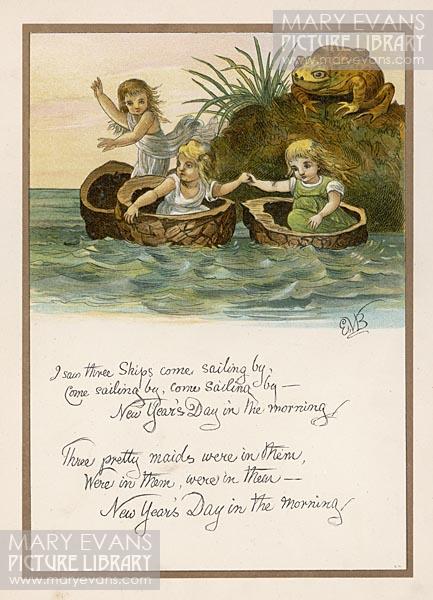 MARY EVANS
PICTURE LIBRARY
www.maryevans.com
EVB
I saw three Ships come sailing by,
Come sailing by, come sailing by —
New Year's Day in the morning!
Three pretty maids were in them,
Were in them, were in them —
New Year's Day in the morning!
MARY EVANS
PICTURE LIBRARY
www.maryevans.com